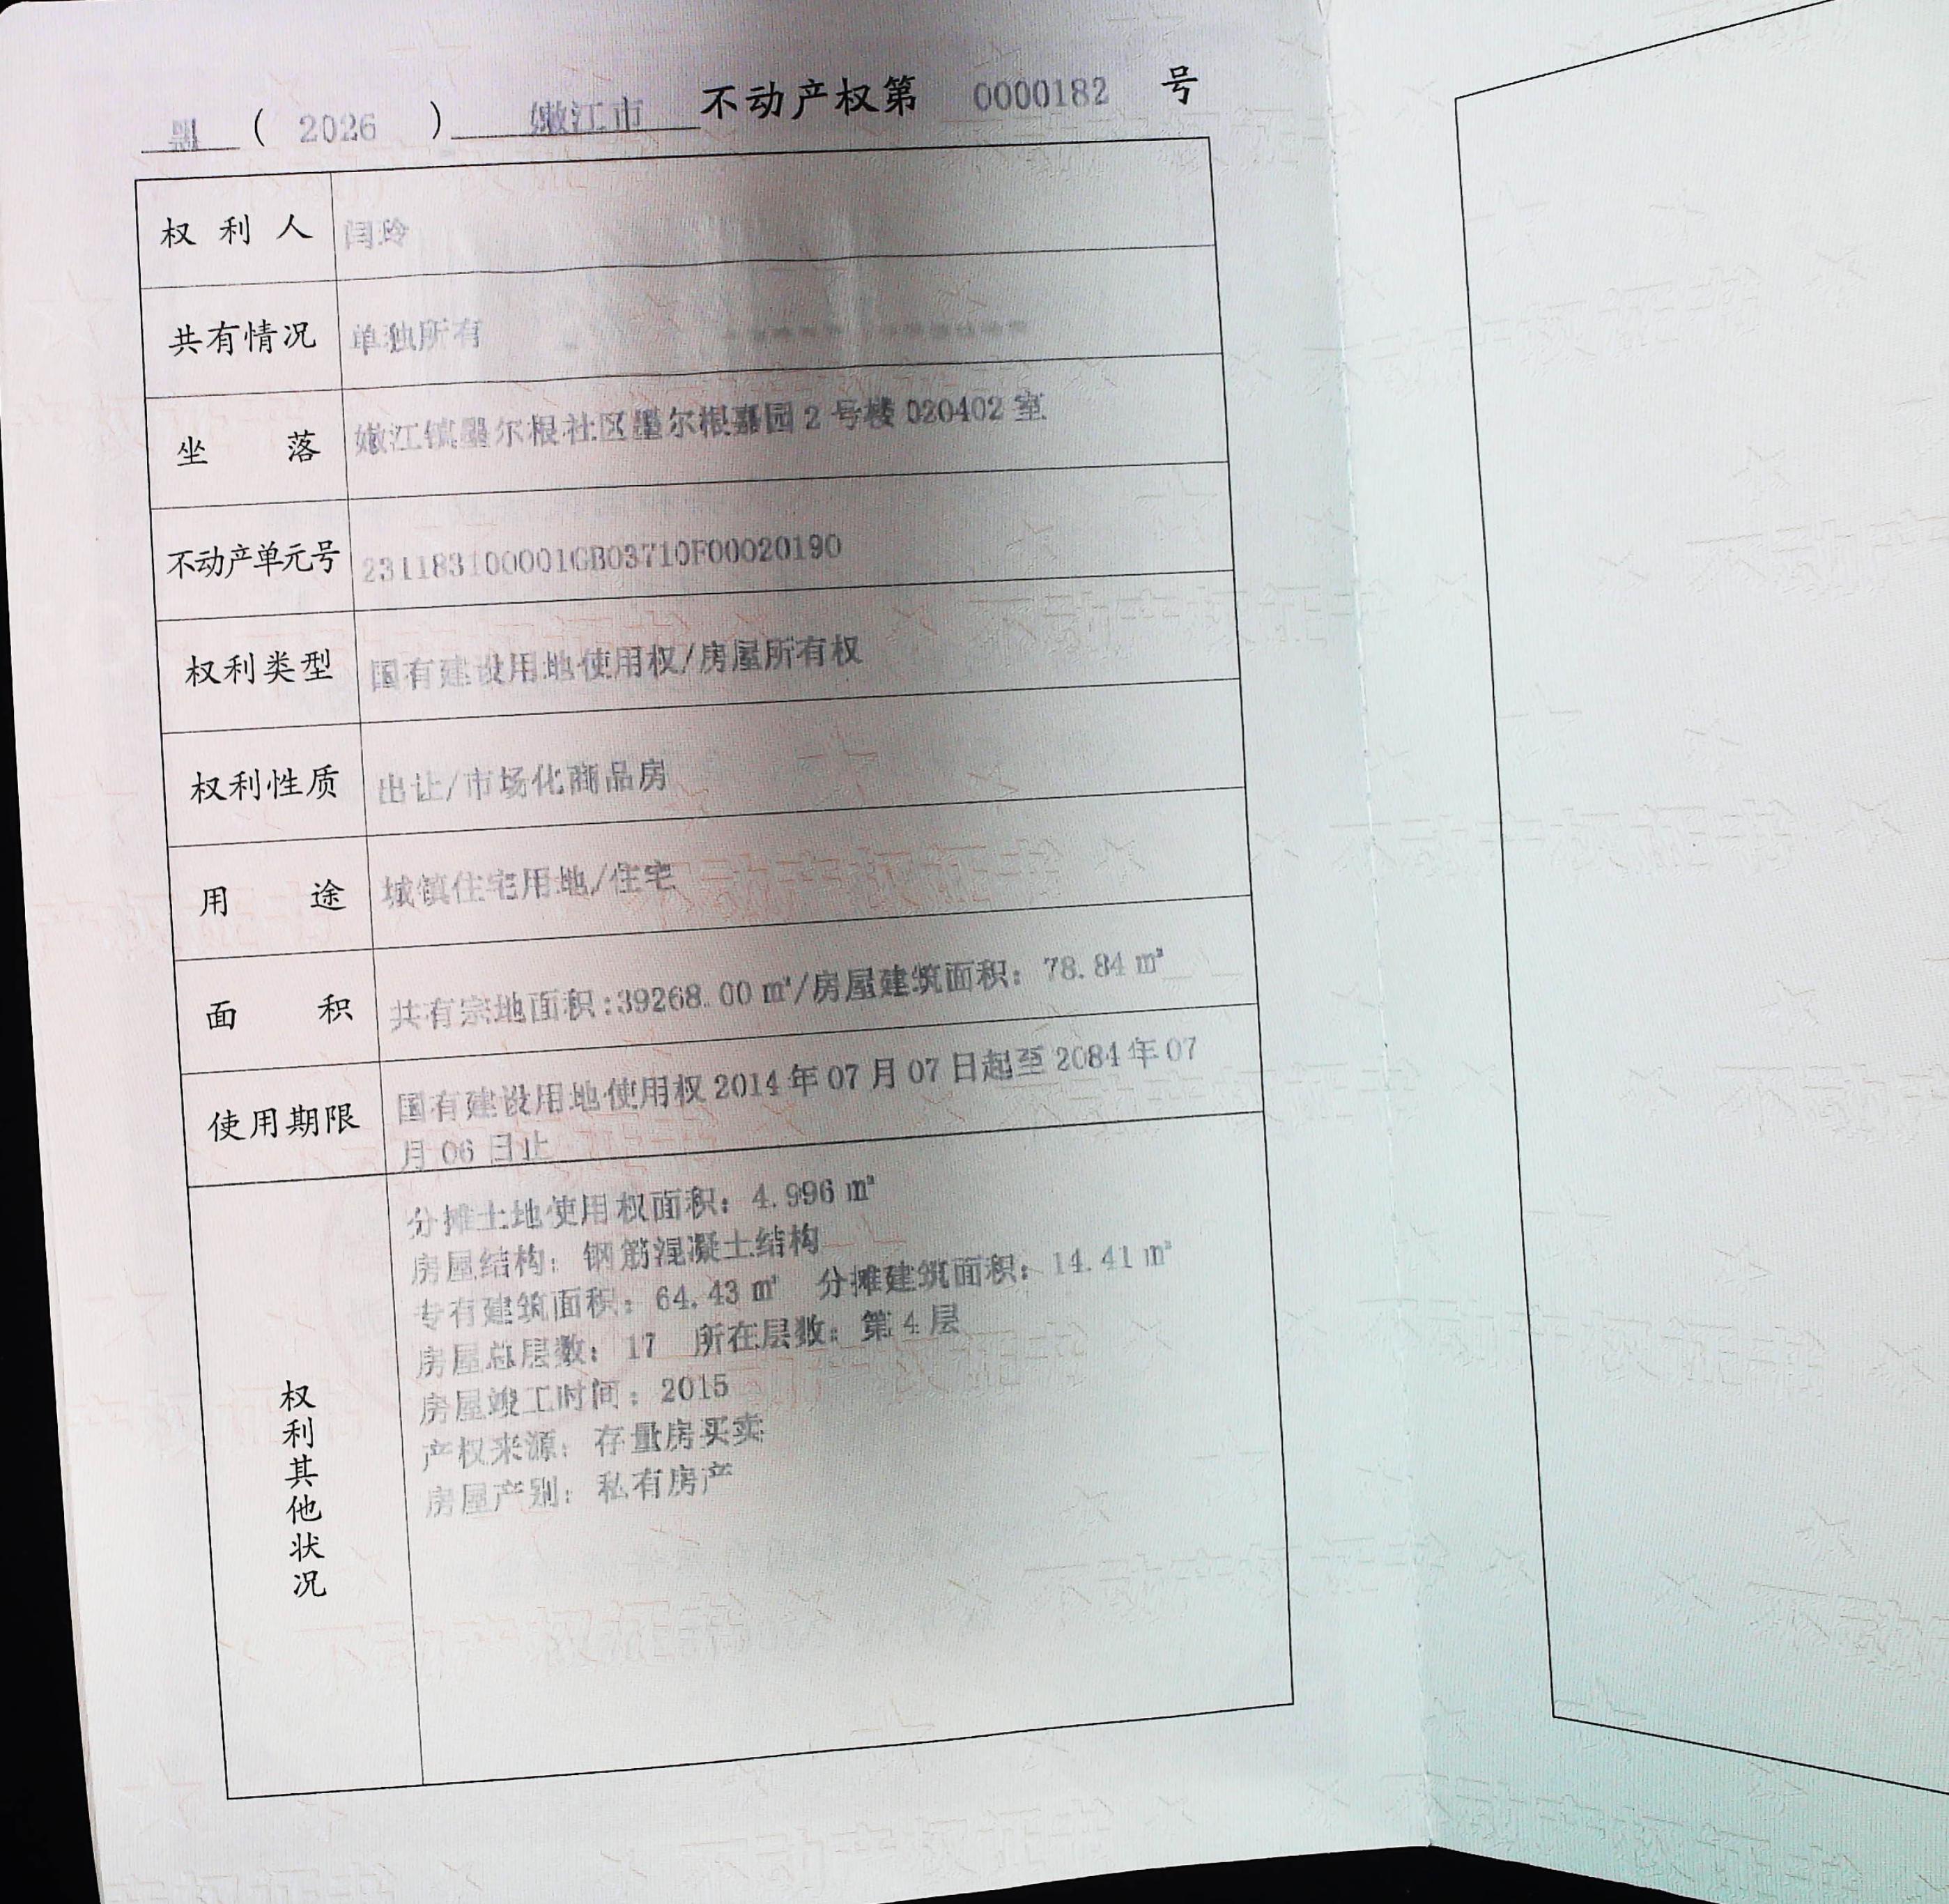 黑 ( 2026 ) 嫩江市 不动产权第 0000182 号
权利人 闫玲
共有情况 单独所有
坐落 嫩江镇墨尔根社区墨尔根嘉园 2 号楼 020402 室
不动产单元号 231183100001GB03710F00020190
权利类型 国有建设用地使用权/房屋所有权
权利性质 出让/市场化商品房
用途 城镇住宅用地/住宅
面积 共有宗地面积:39268.00 ㎡/房屋建筑面积: 78.84 ㎡
使用期限 国有建设用地使用权 2014 年 07 月 07 日起至 2084 年 07
月 06 日止
权利其他状况
分摊土地使用权面积: 4.996 ㎡
房屋结构: 钢筋混凝土结构
专有建筑面积: 64.43 ㎡ 分摊建筑面积: 14.41 ㎡
房屋总层数: 17 所在层数: 第 4 层
房屋竣工时间: 2015
产权来源: 存量房买卖
房屋产别: 私有房产